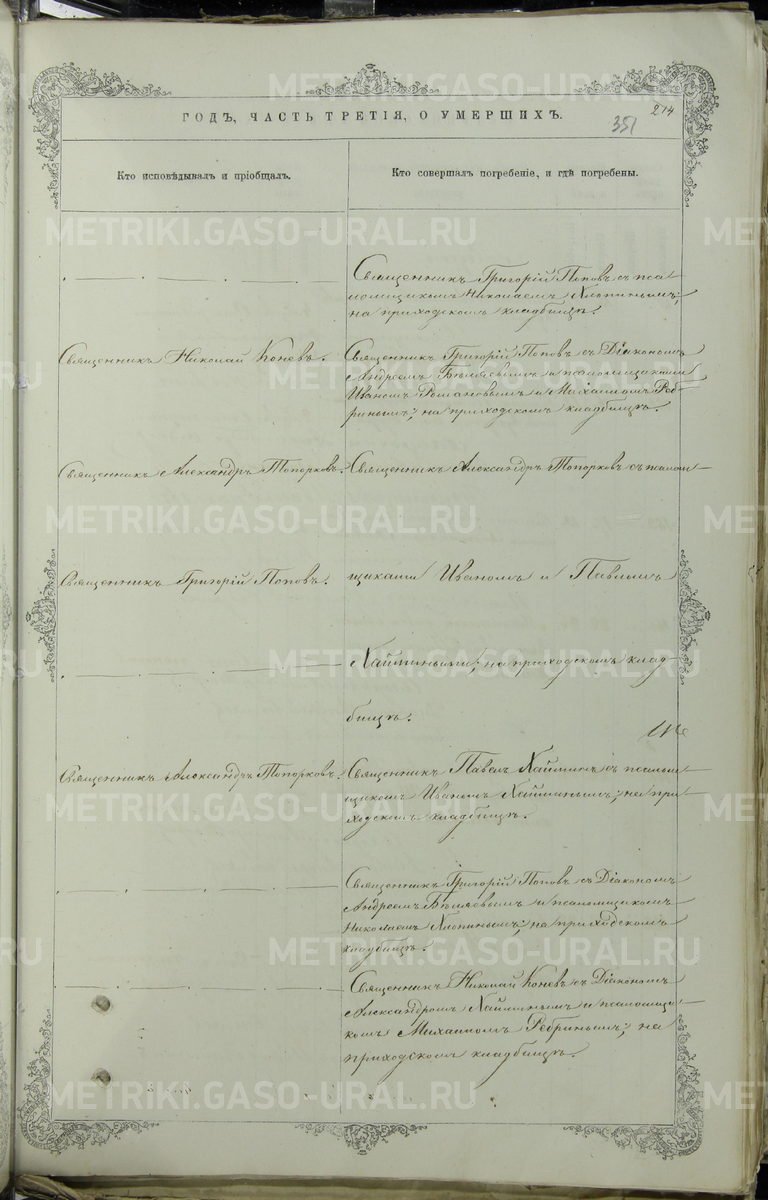 ГОДЪ, ЧАСТЬ ТРЕТІЯ, О УМЕРШИХЪ.
351
214
Кто исповѣдывалъ и пріобщалъ.
Кто совершалъ погребеніе, и гдѣ погребены.
Священникъ Григорій Поповъ съ пса-
ломщикомъ Николаемъ Хлопинымъ;
на приходскомъ кладбищѣ.
Священникъ Николай Коневъ.
Священникъ Григорій Поповъ съ Діакономъ
Андреемъ Бѣляевымъ и псаломщиками
Иваномъ Романовымъ и Михаиломъ Реб-
ринымъ; на приходскомъ кладбищѣ.
Священникъ Александръ Топорковъ.
Священникъ Александръ Топорковъ съ псалом-
Священникъ Григорій Поповъ.
щиками Иваномъ и Павломъ
Хаймиными; на приходскомъ клад-
бищѣ.
Священникъ Александръ Топорковъ.
Священникъ Павелъ Хайминъ съ псалом-
щикомъ Иваномъ Хайминымъ; на при-
ходскомъ кладбищѣ.
Священникъ Григорій Поповъ съ Діакономъ
Андреемъ Бѣляевымъ и псаломщикомъ
Николаемъ Хлопинымъ; на приходскомъ
кладбищѣ.
Священникъ Николай Коневъ съ Діакономъ
Александромъ Хайминымъ и псаломщи-
комъ Михаиломъ Ребринымъ; на
приходскомъ кладбищѣ.
METRIKI.GASO-URAL.RU